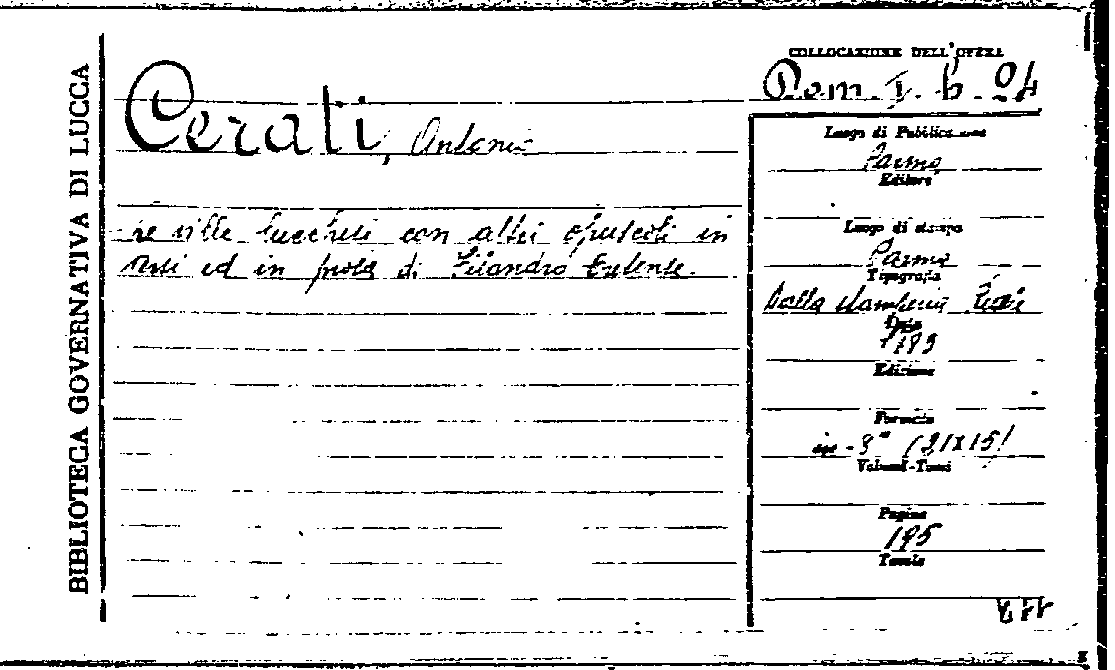 BIBLIOTECA GOVERNATIVA DI LUCCA
COLLOCAZIONE DELL'OPERA
Rom. I. b. 94
Cerati, Antonio
Luogo di Pubblicazione
Parma
Editore
Le ville lucchesi con altri opuscoli in
versi ed in prosa di Filandro
Luogo di stampa
Parma
Tipografia
Dalla stamperia
Data
Edizione
Formato
in-8° (21x15)
Volumi-Tomi
Pagine
195
Tavole